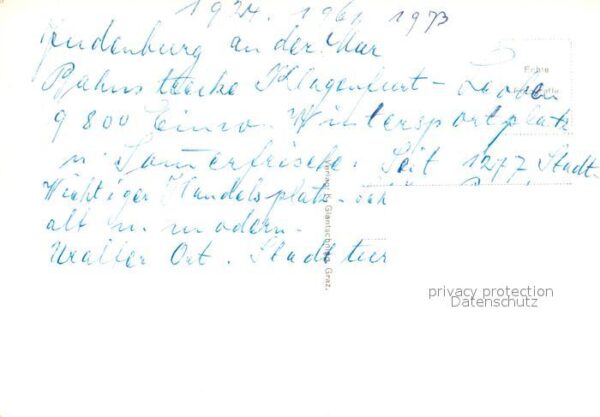 1924. 1961 1973
Judenburg an der Mur
Bahnstrecke Klagenfurt - Leoben
9 800 Einwo. Wintersportplatz
u. Somerfrische. Seit 1277 Stadt-
Wichtiger Handelsplatz -
alt u. modern.
Uralter Ort. Stadt
Echte
Verlag K. Glantschnigg, Graz.
privacy protection
Datenschutz